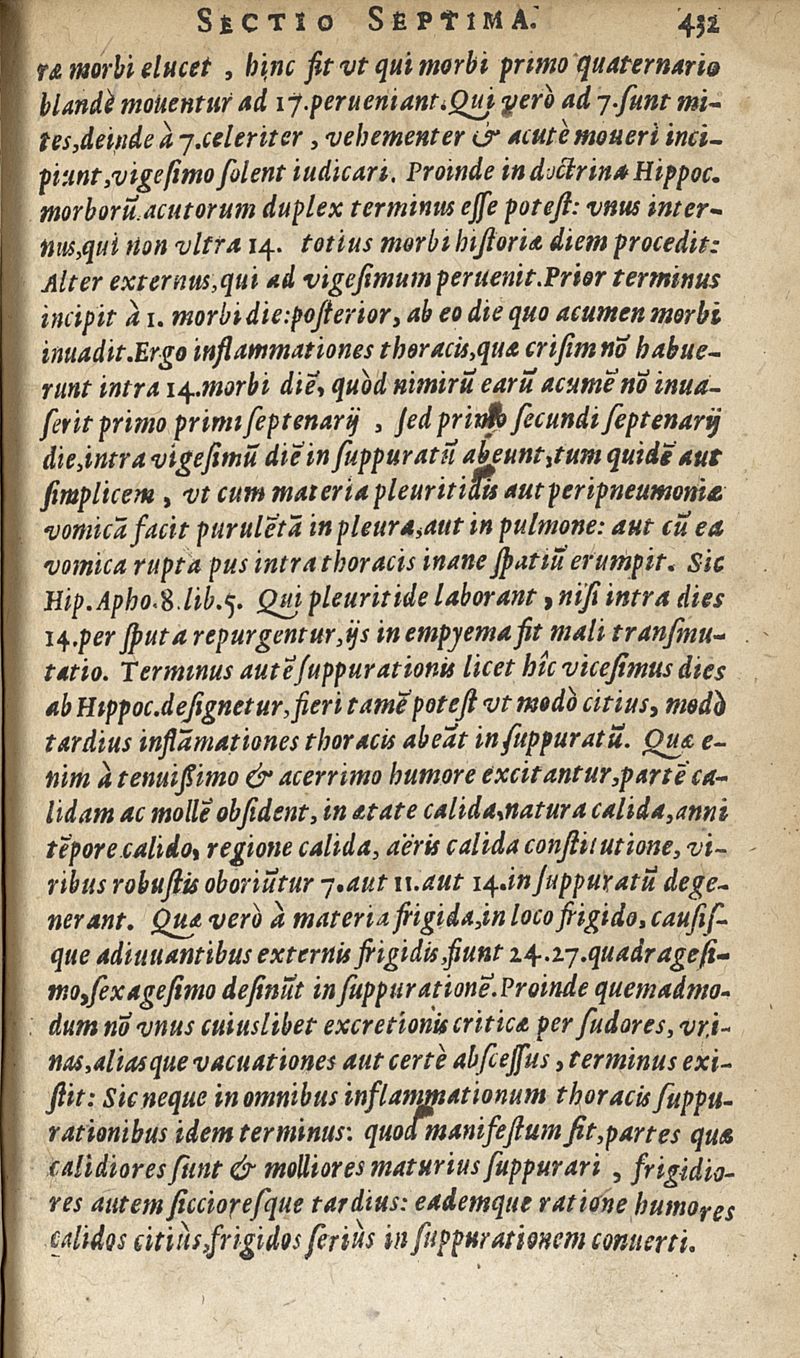 SECTIO SEPTIMA. 432
ræ morbi elucet , hinc fit vt qui morbi primo quaternario
blandè mouentur ad 17.perueniant.Qui verò ad 7.ſunt mi-
tes,deinde à 7.celeriter , vehementer & acutè moueri inci-
piunt,vigeſimo ſolent iudicari. Proinde in doctrina Hippoc.
morborũ acutorum duplex terminus eſſe poteſt: vnus inter-
nus,qui non vltra 14. totius morbi hiſtoriæ diem procedit:
Alter externus,qui ad vigeſimum peruenit.Prior terminus
incipit à 1. morbi die:poſterior, ab eo die quo acumen morbi
inuadit.Ergo inflammationes thoracis,quæ criſim nõ habue-
runt intra 14.morbi diẽ, quòd nimirũ earũ acumẽ nõ inua-
ſerit primo primi ſeptenarij , ſed primo ſecundi ſeptenarij
die,intra vigeſimũ diẽ in ſuppuratũ abeunt,tum quidẽ aut
ſimplicem , vt cum materia pleuritidis aut peripneumoniæ
vomicã facit purulẽtã in pleura,aut in pulmone: aut cũ ea
vomica rupta pus intra thoracis inane ſpatiũ erumpit. Sic
Hip.Apho.8.lib.5. Qui pleuritide laborant , niſi intra dies
14.per ſputa repurgentur,ijs in empyema fit mali tranſmu-
tatio. Terminus autẽ ſuppurationis licet hîc viceſimus dies
ab Hippoc.deſignetur, fieri tamẽ poteſt vt modò citius, modò
tardius inflãmationes thoracis abeãt in ſuppuratũ. Quæ e-
nim à tenuiſſimo & acerrimo humore excitantur,partẽ ca-
lidam ac mollẽ obſident, in ætate calida,natura calida,anni
tẽpore calido, regione calida, aëris calida conſtitutione, vi-
ribus robuſtis oboriũtur 7.aut 11.aut 14.in ſuppuratũ dege-
nerant. Quæ verò à materia frigida,in loco frigido, cauſiſ-
que adiuuantibus externis frigidis,fiunt 24.27.quadrageſi-
mo,ſexageſimo deſinũt in ſuppurationẽ.Proinde quemadmo-
dum nõ vnus cuiuslibet excretionis criticæ per ſudores, vri-
nas,aliasque vacuationes aut certè abſceſſus , terminus exi-
ſtit: Sic neque in omnibus inflammationum thoracis ſuppu-
rationibus idem terminus: quod manifeſtum ſit,partes quæ
calidiores ſunt & molliores maturius ſuppurari , frigidio-
res autem ſiccioreſque tardius: eademque ratione humores
calidos citiùs,frigidos ſeriùs in ſuppurationem conuerti.